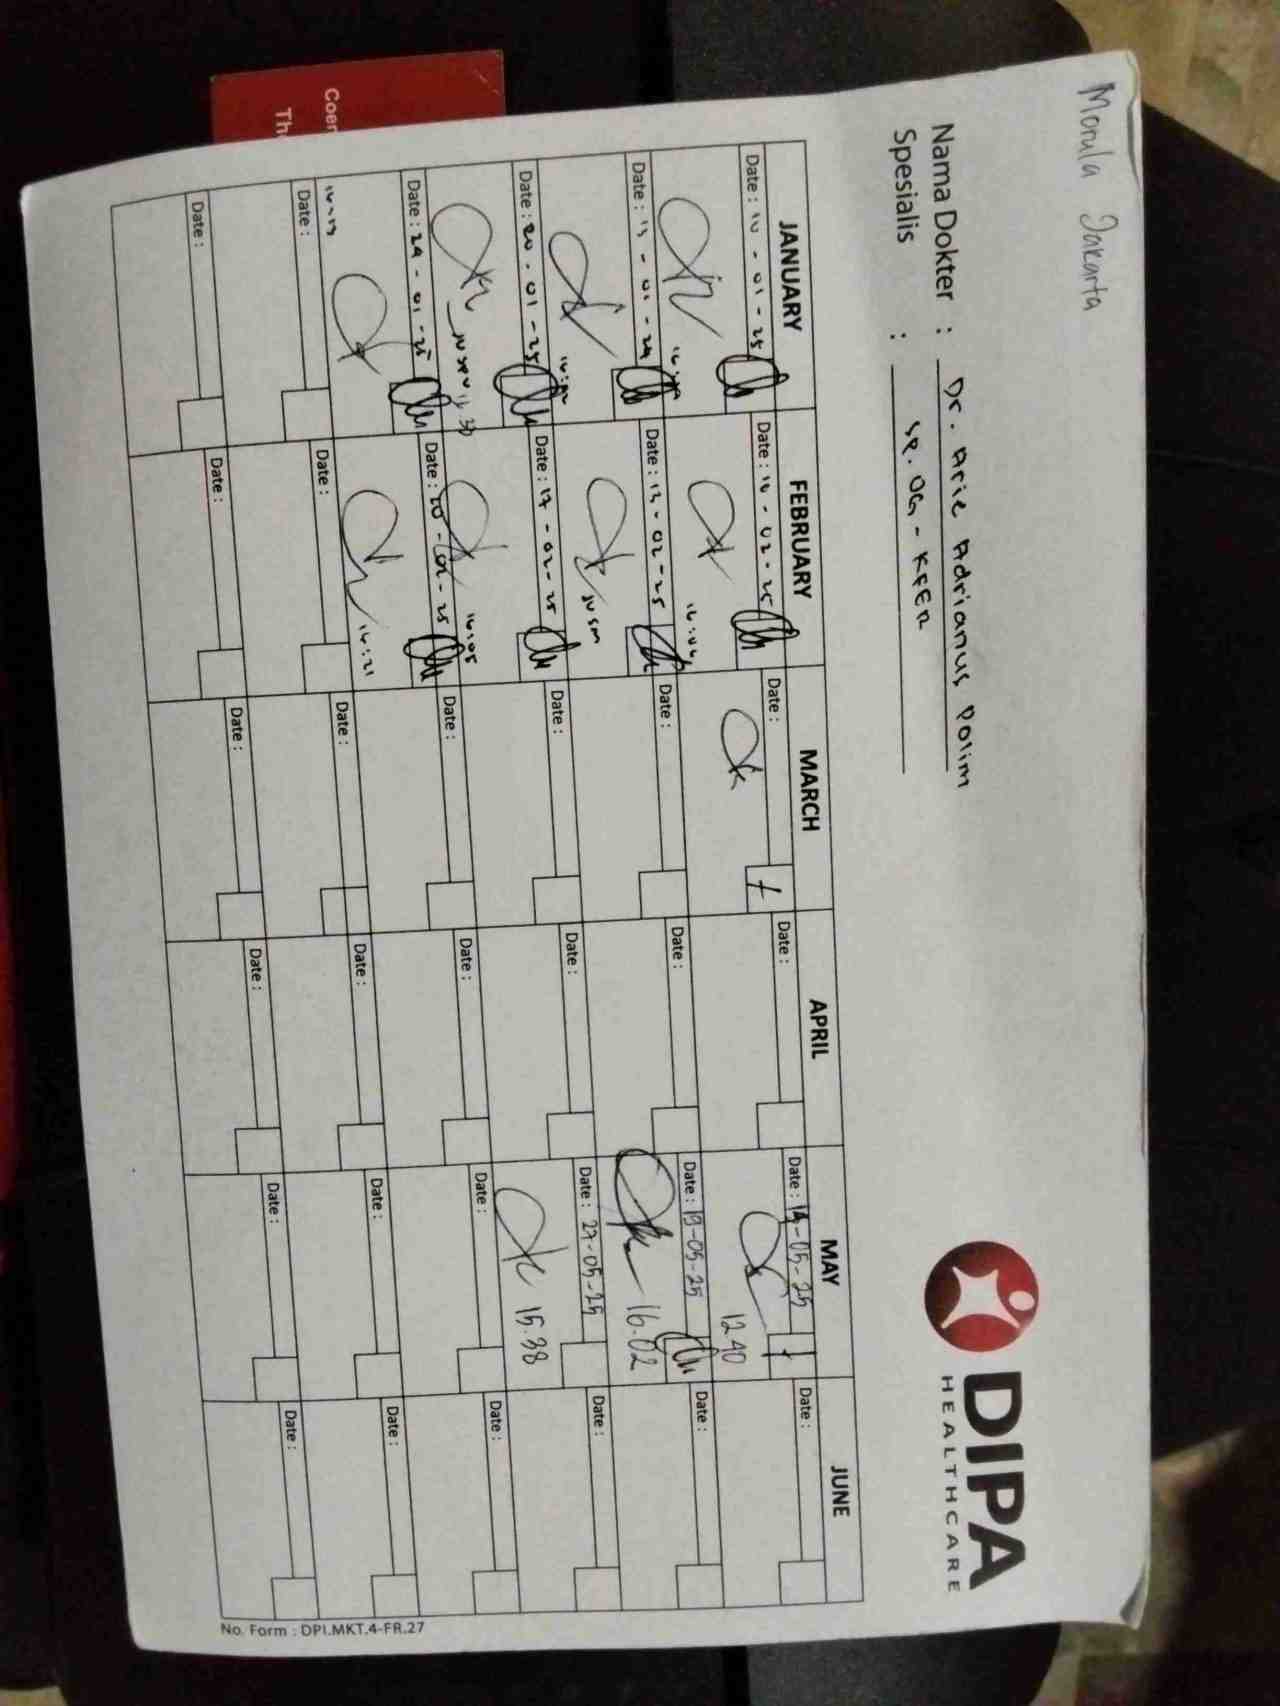 Morula Jakarta
DIPA
HEALTHCARE
Nama Dokter : Dr. Arie Adrianus Polim
Spesialis : SP. OG - KFER
JANUARY FEBRUARY MARCH APRIL MAY JUNE
Date : 10 - 01 - 25 Date : 10 - 02 - 25 Date : Date : Date : 14-05-25 Date :
16:06 12.40
Date : 13 - 01 - Date : 13 - 02 - 25 Date : Date : Date : 19-05-25 Date :
16.02
Date : 20 - 01 - 25 Date : 17 - 02 - 25 Date : Date : Date : 27-05-25 Date :
16:05 15.38
Date : 24 - 01 - 25 Date : 20 - 02 - 25 Date : Date : Date : Date :
16:21
Date : Date : Date : Date : Date : Date :
Date : Date : Date : Date : Date : Date :
No. Form : DPI.MKT.4-FR.27
Coen
The